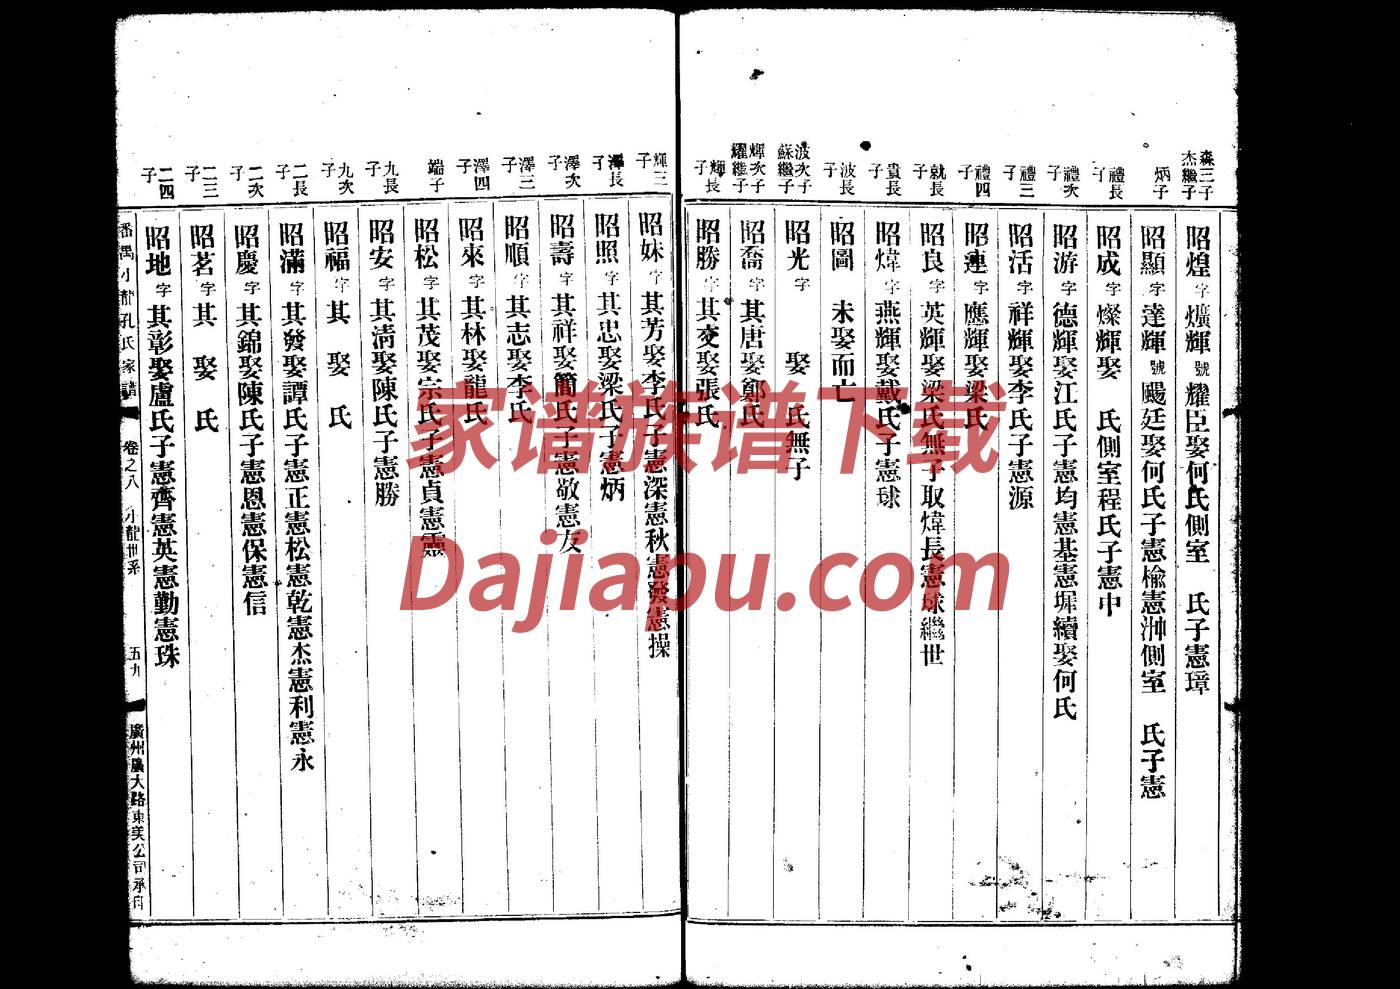 森三子
杰繼子
昭煌字爌輝號耀臣娶何氏側室 氏子憲璋
炳子
昭顯字達輝號颺廷娶何氏子憲榆憲浺側室 氏子憲
禮長子
昭成字燦輝娶 氏側室程氏子憲中
禮次子
昭游字德輝娶江氏子憲均憲基憲墀續娶何氏
禮三子
昭活字祥輝娶李氏子憲源
禮四子
昭連字應輝娶梁氏
就長子
昭良字英輝娶梁氏無子取煒長憲球繼世
貴長子
昭煒字燕輝娶戴氏子憲球
波長子
昭圖 未娶而亡
波次子
蘇繼子
昭光字 娶 氏無子
輝次子
耀繼子
昭喬字其唐娶鄭氏
輝長子
昭勝字其交娶張氏
輝三子
昭妹字其芳娶李氏子憲深憲秋憲發憲操
澤長子
昭照字其忠娶梁氏子憲炳
澤次子
昭壽字其祥娶簡氏子憲敬憲友
澤三子
昭順字其志娶李氏
澤四子
昭來字其林娶龍氏
端子
昭松字其茂娶宗氏子憲貞憲靈
九長子
昭安字其清娶陳氏子憲勝
九次子
昭福字其 娶 氏
二長子
昭滿字其發娶譚氏子憲正憲松憲乾憲杰憲利憲永
二次子
昭慶字其錦娶陳氏子憲恩憲保憲信
二三子
昭茗字其 娶 氏
二四子
昭地字其彰娶盧氏子憲齊憲英憲勤憲珠
番禺小龍孔氏家譜 卷之八 小龍世系 五九 廣州惠大路東美公司承印
家谱族谱下载
Dajiapu.com